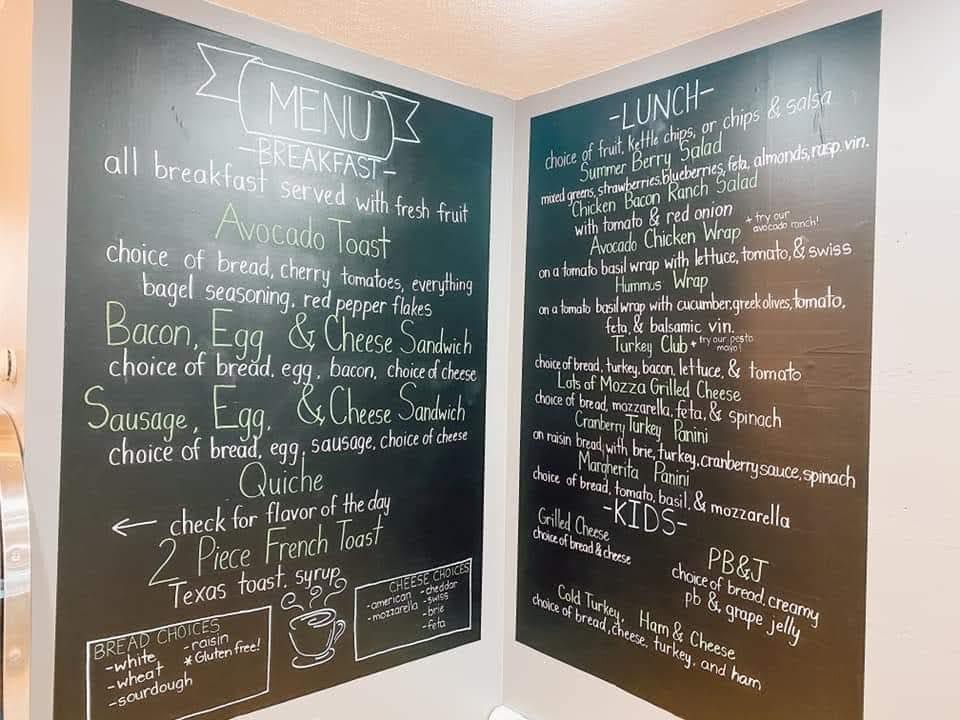 MENU
-BREAKFAST-
all breakfast served with fresh fruit
Avocado Toast
choice of bread, cherry tomatoes, everything
bagel seasoning, red pepper flakes
Bacon, Egg & Cheese Sandwich
choice of bread, egg, bacon, choice of cheese
Sausage, Egg, & Cheese Sandwich
choice of bread, egg, sausage, choice of cheese
Quiche
← check for flavor of the day
2 Piece French Toast
Texas toast, syrup
BREAD CHOICES
-white
-wheat
-sourdough
-raisin
*Gluten free!
CHEESE CHOICES
-american
-mozzarella
-cheddar
-swiss
-brie
-feta
-LUNCH-
choice of fruit, kettle chips, or chips & salsa
Summer Berry Salad
mixed greens, strawberries, blueberries, feta, almonds, rasp. vin.
Chicken Bacon Ranch Salad
with tomato & red onion
Avocado Chicken Wrap + try our avocado ranch!
on a tomato basil wrap with lettuce, tomato, & swiss
Hummus Wrap
on a tomato basil wrap with cucumber, greek olives, tomato,
feta, & balsamic vin.
Turkey Club + try our pesto mayo!
choice of bread, turkey, bacon, lettuce, & tomato
Lots of Mozza Grilled Cheese
choice of bread, mozzarella, feta, & spinach
Cranberry Turkey Panini
on raisin bread, with brie, turkey, cranberry sauce, spinach
Margherita Panini
choice of bread, tomato, basil, & mozzarella
-KIDS-
Grilled Cheese
choice of bread & cheese
PB&J
choice of bread, creamy
pb & grape jelly
Cold Turkey, Ham & Cheese
choice of bread, cheese, turkey, and ham